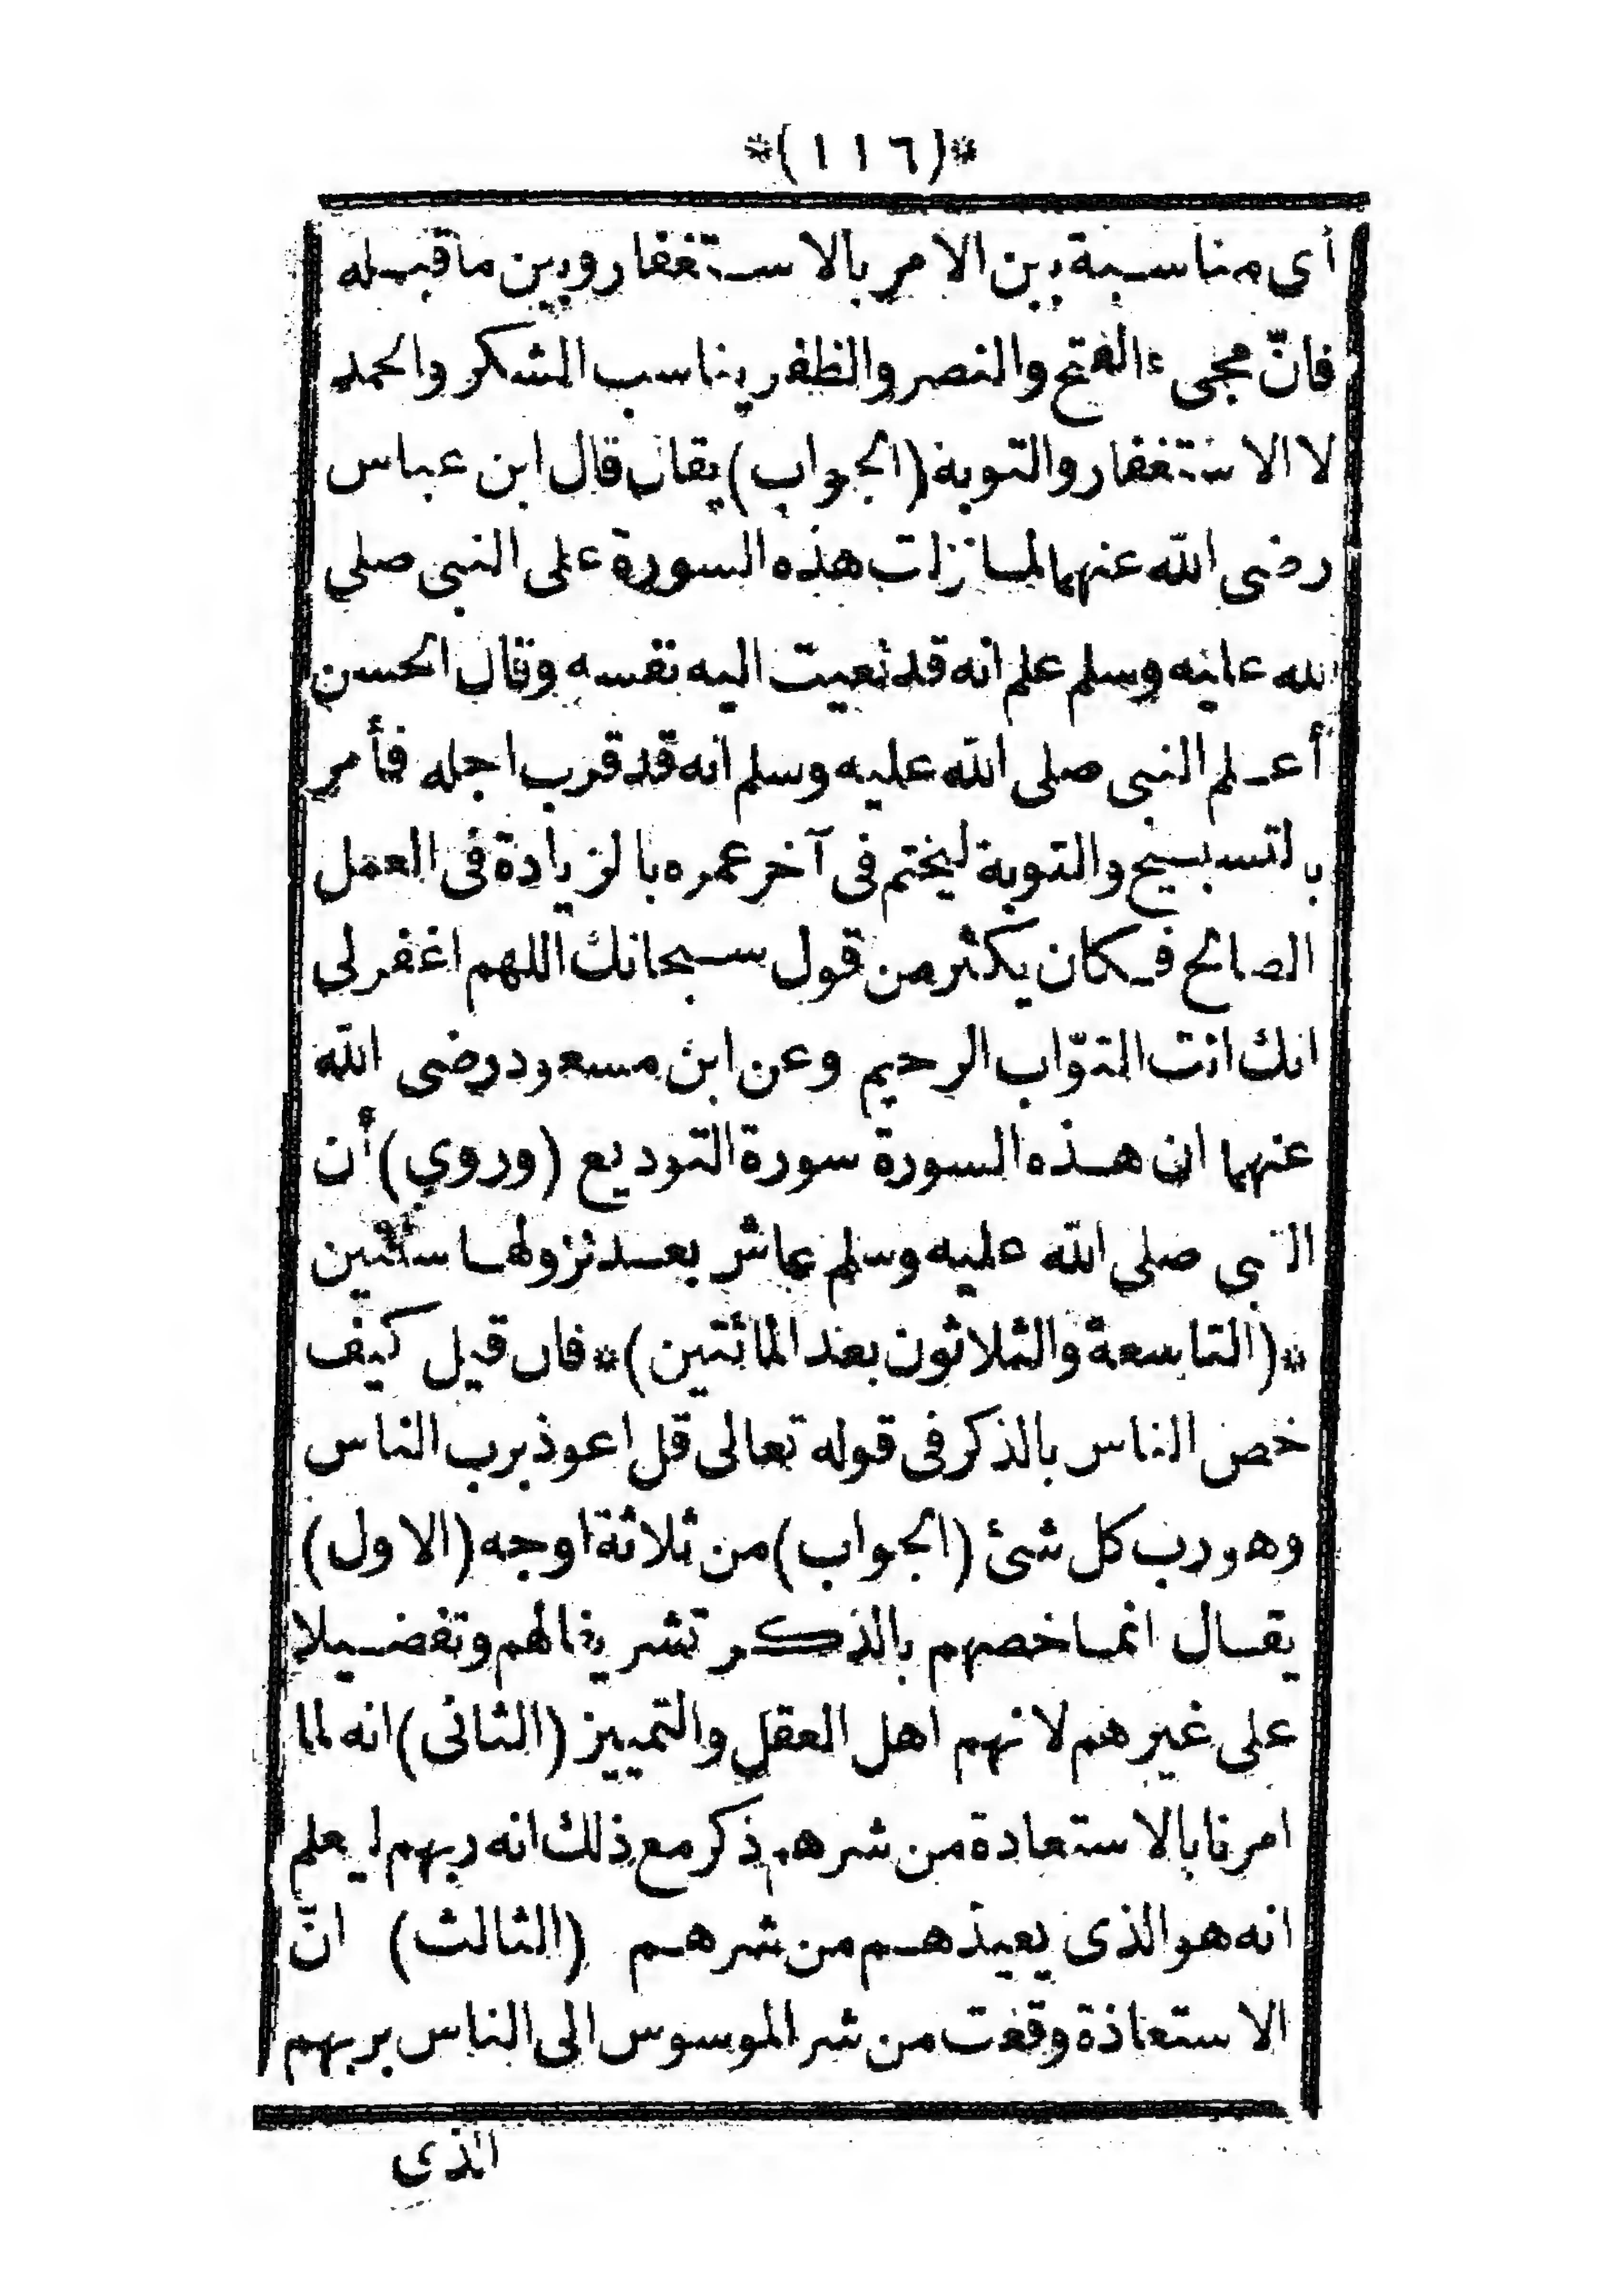 *(١١٦)*
أى مناسبة بين الامر بالاستغفار وبين ما قبله
فانّ مجىء الفتح والنصر والظفر يناسب الشكر والحمد
لا الاستغفار والتوبة (الجواب) يقال قال ابن عباس
رضى الله عنهما لما نزلت هذه السورة على النبى صلى
الله عليه وسلم علم انه قد نعيت اليه نفسه وقال الحسن
أعلم النبى صلى الله عليه وسلم انه قد قرب اجله فأمر
بالتسبيح والتوبة ليختم فى آخر عمره بالزيادة فى العمل
الصالح فكان يكثر من قول سبحانك اللهم اغفر لى
انك انت التوّاب الرحيم وعن ابن مسعود رضى الله
عنهما ان هذه السورة سورة التوديع (وروي) أن
النبى صلى الله عليه وسلم عاش بعد نزولها سنتين
*(التاسعة والثلاثون بعد المائتين)* فان قيل كيف
خص الناس بالذكر فى قوله تعالى قل اعوذ برب الناس
وهو رب كل شئ (الجواب) من ثلاثة اوجه (الاول)
يقال انما خصهم بالذكر تشريفا لهم وتفضيلا
على غيرهم لانهم اهل العقل والتمييز (الثانى) انه لما
امرنا بالاستعادة من شرهم ذكر مع ذلك انه ربهم ليعلم
انه هو الذى يعيذهم من شرهم (الثالث) انّ
الاستعاذة وقعت من شر الموسوس الى الناس بربهم
الذى